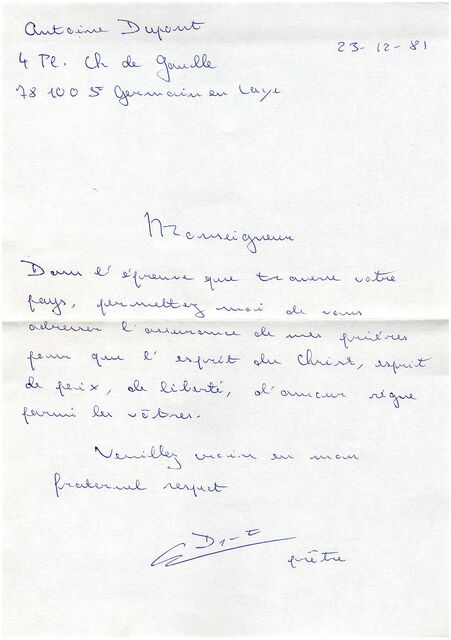 Antoine Dupont
23-12-81
4 Pl. Ch de Gaulle
78 100 St Germain en Laye
Monseigneur
Dans l'épreuve que traverse votre
pays, permettez moi de vous
adresser l'assurance de mes prières
pour que l'esprit du Christ, esprit
de paix, de liberté, d'amour règne
parmi les vôtres.
Veuillez croire en mon
fraternel respect
prêtre